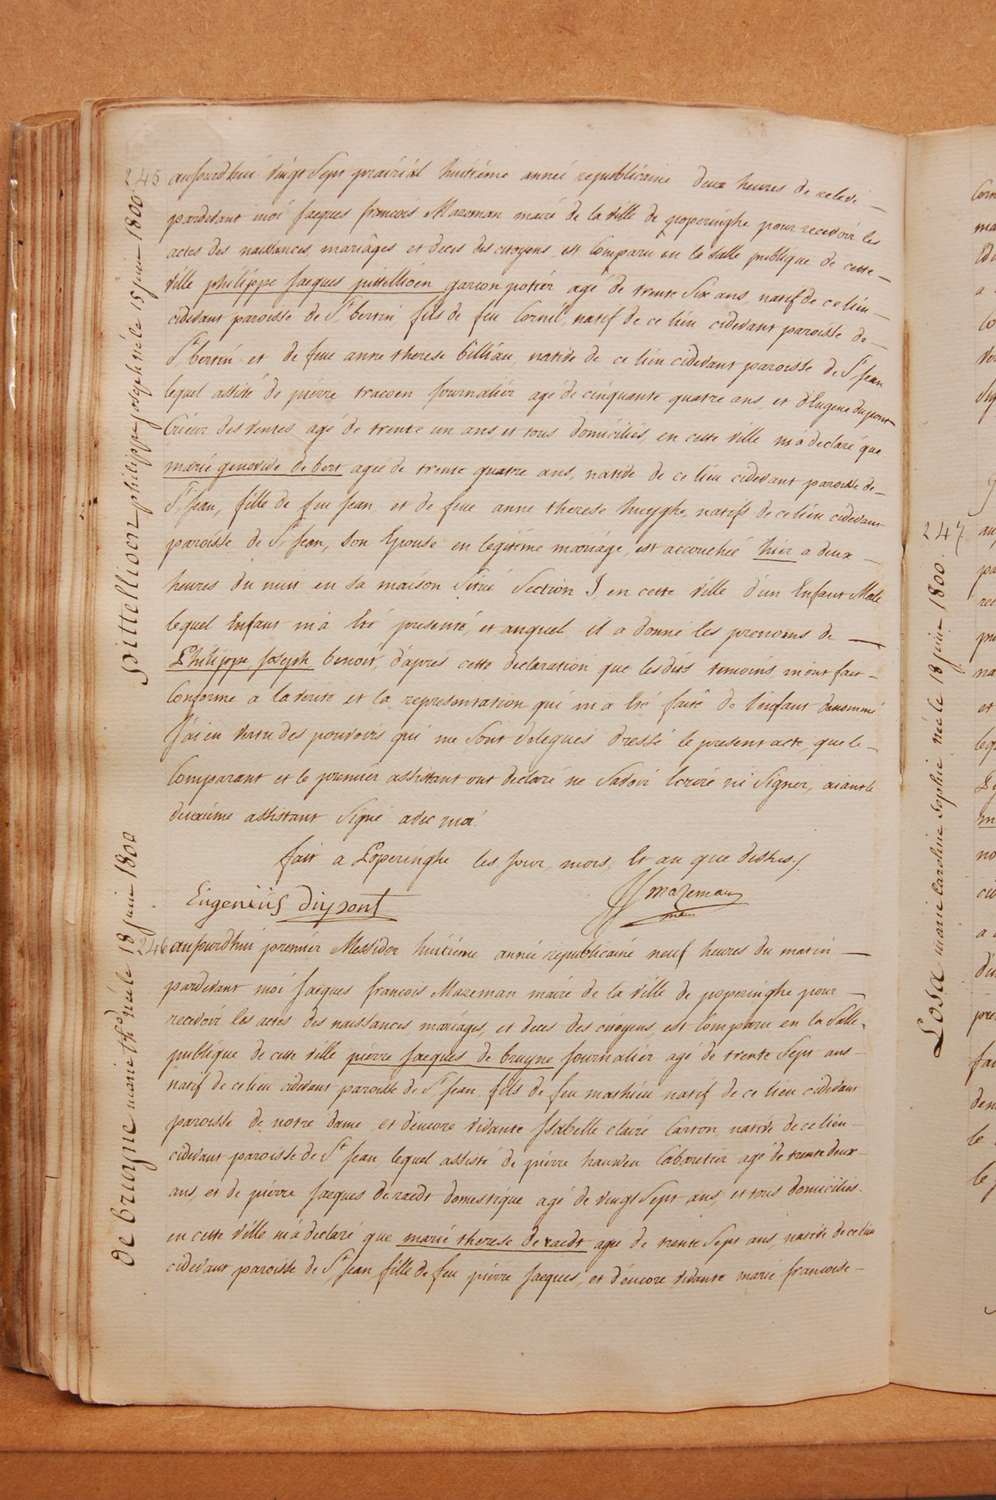 245 aujourdhui vingt Sept prairial huitiéme année republicaine deux heures de relevée —
pardevant moi Jacques francois Mazeman maire de la ville de poperinghe pour recevoir les
actes des naissances, mariâges et deces des citoyens, est Comparu en la Salle publique de cette —
ville philippe Jacques pittellioen garçon potier agé de trente Six ans, natif de ce lieu —
cidevant paroisse de St bertin fils de feu Cornil, natif de ce lieu cidevant paroisse de —
St bertin et de feue anne therese billiau, native de ce lieu cidevant paroisse de St Jean
lequel assisté de pierre traccoen Journalier agé de cinquante quatre ans, et d'Eugene dupont
Crieur des ventes agé de trente un ans et tous domiciliés en cette ville m'a declaré que
marie genovive de bert agée de trente quatre ans, native de ce lieu cidevant paroisse de —
St Jean, fille de feu Jean et de feue anne therese huyghe, natifs de ce lieu cidevant
paroisse de St Jean, Son Epouse en legitime mariâge, est accouchée hier a deux —
heures du nuit en sa maison Situé Section I en cette ville d'un Enfant Mâle
lequel Enfant m'a été presenté, et auquel il a donné les prenoms de —
Philippe Joseph benoit, d'apres cette declaration que lesdits temoins m'ont fait —
Conforme a la verité et la representation qui m'a été faite de l'enfant denommé
J'ai en vertu des pouvoirs qui me Sont delegués dressé le present acte que le —
Comparant et le premier assistant ont declaré ne Savoir Ecrire ni Signer, aiant le
deuxiéme assistant Signé avec moi
fait a Poperinghe les Jour, mois, Et an que dessus.
Eugeniüs düpont
Mazeman
maire
246 aujourdhui premier Messidor huitiéme année republicaine neuf heures du matin —
pardevant moi Jacques francois Mazeman maire de la ville de poperinghe pour —
recevoir les actes des naissances mariâges, et deces des citoyens, est Comparu en la Salle
publique de cette ville pierre Jacques de bruyne Journalier agé de trente Sept ans —
natif de ce lieu cidevant paroisse de St Jean, fils de feu mathieu natif de ce lieu cidevant
paroisse de notre dame et d'encore vivante Isabelle claire Carton native de ce lieu —
cidevant paroisse de St Jean lequel assisté de pierre Cabaretier agé de trente deux —
ans, et de pierre Jacques de raedt domestique agé de vingt Sept ans, et tous domiciliés
en cette ville m'a declaré que marie therese de raedt agée de trente Sept ans native de ce lieu
cidevant paroisse de St Jean fille de feu pierre Jacques, et d'encore vivante marie francoise —
pittellioen philippe joseph né le 15 juin 1800
de bruyne marie thse née le 18 juin 1800
247
Losa marie Caroline Sophie née le 18 juin 1800